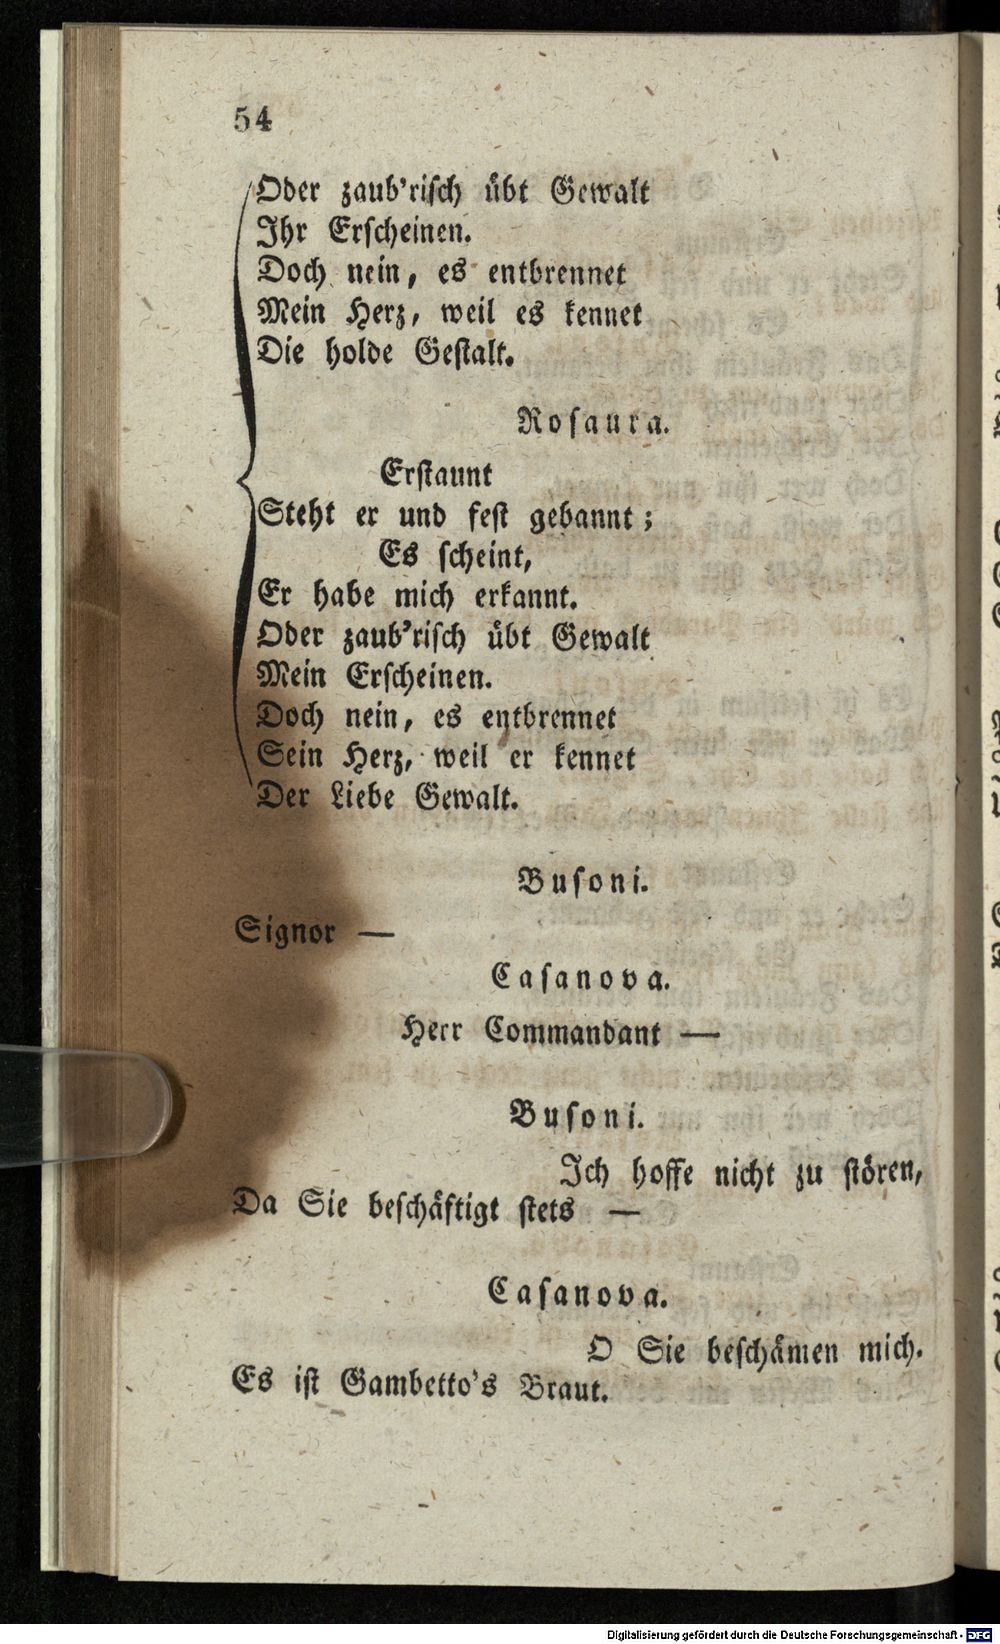 54
Oder zaub'riſch übt Gewalt
Ihr Erſcheinen.
Doch nein, es entbrennet
Mein Herz, weil es kennet
Die holde Geſtalt.
Roſaura.
Erſtaunt
Steht er und feſt gebannt;
Es ſcheint,
Er habe mich erkannt.
Oder zaub'riſch übt Gewalt
Mein Erſcheinen.
Doch nein, es entbrennet
Sein Herz, weil er kennet
Der Liebe Gewalt.
Buſoni.
Signor —
Caſanova.
Herr Commandant —
Buſoni.
Ich hoffe nicht zu ſtören,
Da Sie beſchäftigt ſtets —
Caſanova.
O Sie beſchämen mich.
Es iſt Gambetto's Braut.
Digitalisierung gefördert durch die Deutsche Forschungsgemeinschaft - DFG